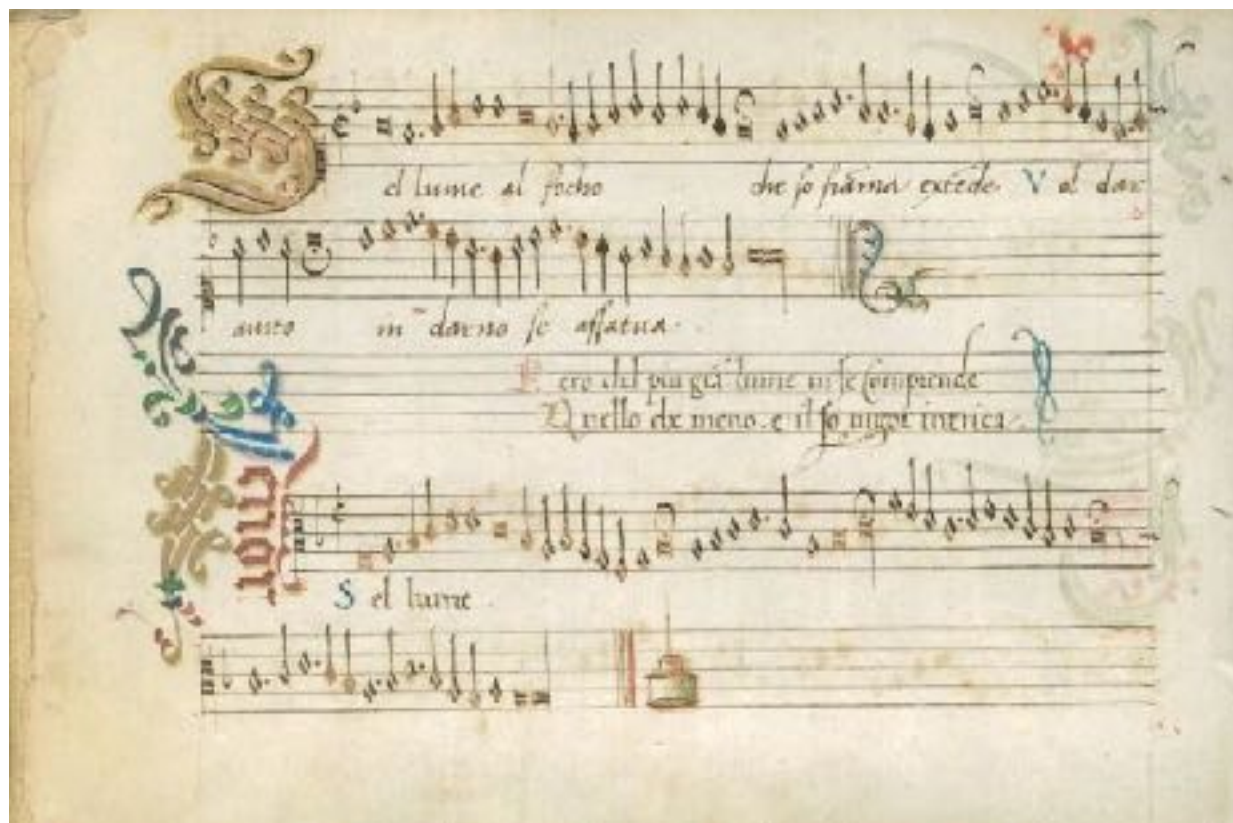 Sel lume al focho che so fiama excede V ol dar
aiuto in darno se affatica.
P ero chel piu gra lume in se comprende
Q uello che meno. e il so vigor intrica.
Tenor
S el lume.